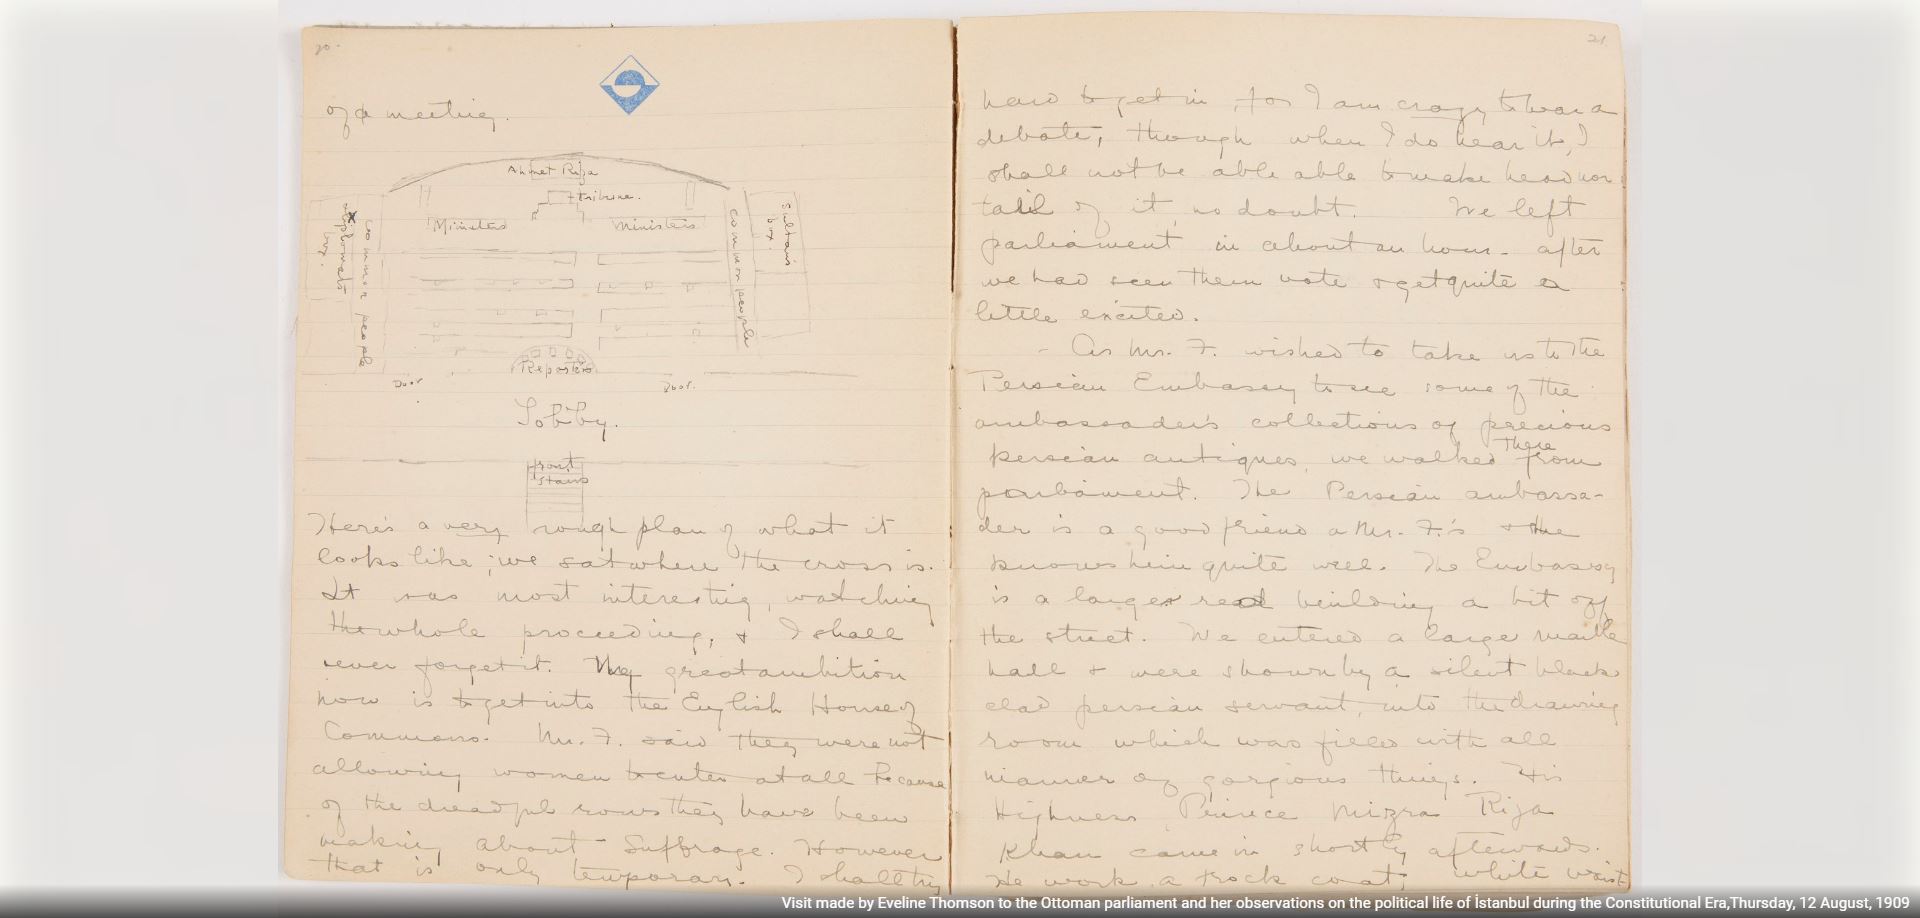 20.
of a meeting.
Ahmet Riza
tribune.
Ministers
Ministers
diplomats
box.
x
common people
common people
Sultan's
box.
Reporters
Door.
Door.
Lobby.
front
stairs
Here's a very rough plan of what it
looks like; we sat where the cross is.
It was most interesting, watching
the whole proceeding, & I shall
never forget it. My great ambition
now is to get into the English House of
Commons. Mr. F. said they were not
allowing women to enter at all because
of the dreadful rows they have been
making about Suffrage. However
that is only temporary. I shall try
21.
hard to get in, for I am crazy to hear a
debate, though when I do hear it, I
shall not be able able to make head nor
tail of it, no doubt. We left
parliament in about an hour - after
we had seen them vote & get quite a
little excited.
- As Mr. F. wished to take us to the
Persian Embassy to see some of the
ambassador's collections of precious
persian antiques, we walked there from
parliament. The Persian ambassa-
der is a good friend a Mr. F.'s & she
knows him quite well. The Embassy
is a large red building a bit off
the street. We entered a large marble
hall & were shown by a silent black
clad persian servant, into the drawing
room which was filled with all
manner of gorgious things. His
Highness Prince Mizra Riza
Khan came in shortly afterwards.
He work a frock coat, white waist
Visit made by Eveline Thomson to the Ottoman parliament and her observations on the political life of İstanbul during the Constitutional Era,Thursday, 12 August, 1909